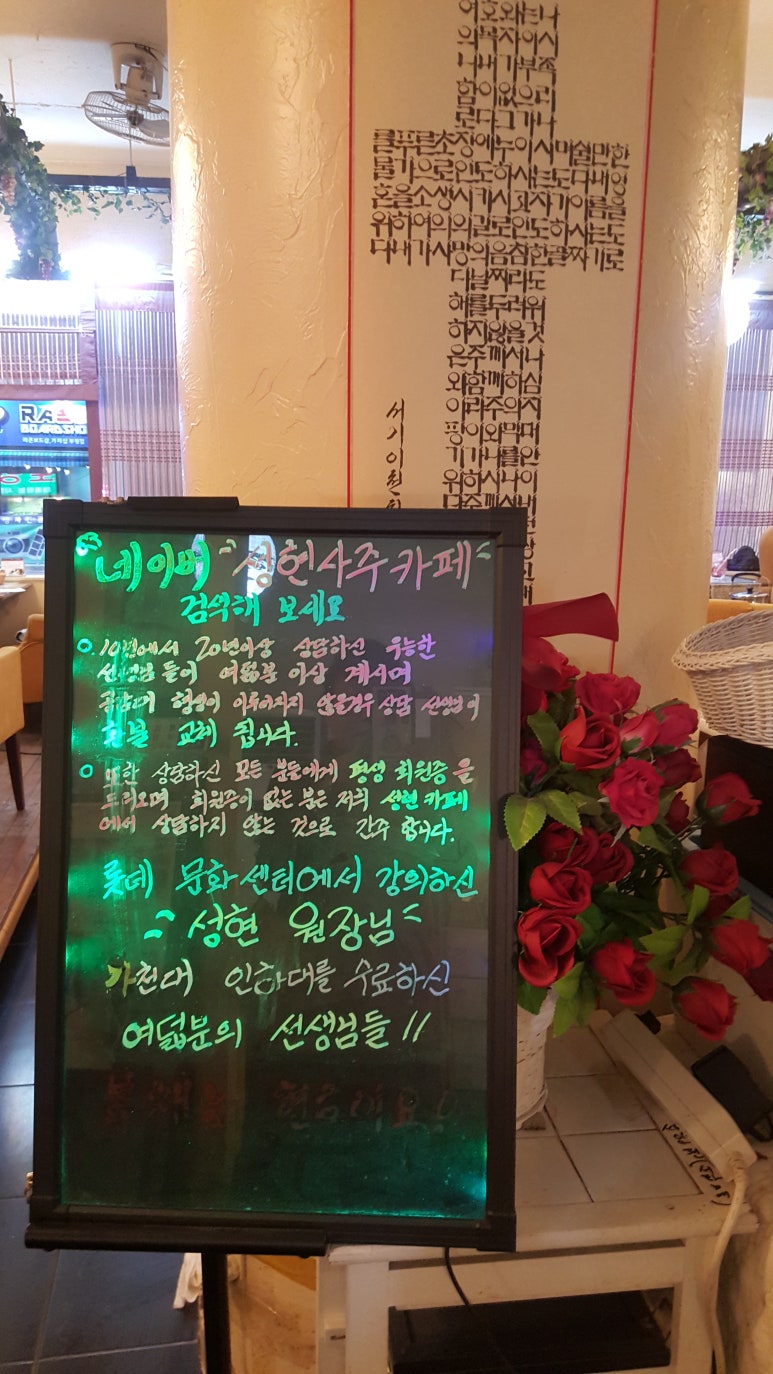 여호와는나
의목자이시
니내가부족
함이없으리
로다그가나
를푸른초장에누이시며쉴만한
물가으로인도하시는도다내영
혼을소생시키시고자기이름을
위하여의의길로인도하시는도
다내가사망의음침한골짜기로
다닐찌라도
해를두려워
하지않을것
은주께서나
와함께하심
이라주의지
팡이와막대
기가나를안
위하시나이
BOARDSHO
네이버 "성현사주카페"
검색해 보세요
10년에서 20년이상 상담하신 유능한
선생님들이 여덟분 이상 계시며
형성이 이루어지지 않을경우 상담 선생님이
환불 교체 됩니다.
또한 상담하신 모든 분들에게 평생 회원증을
드리오며 회원증이 없는 분은 저희 성현 카페
에서 상담하지 않는 것으로 간주 합니다.
롯데 문화센터에서 강의하신
성현 원장님
가천대 인하대를 수료하신
여덟분의 선생님들 !!
현금이요!